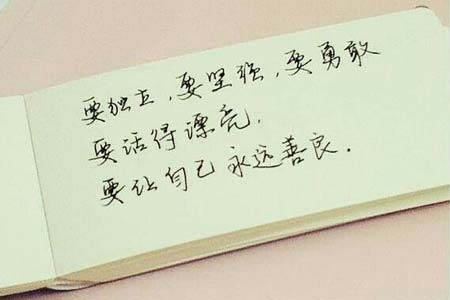 要独立，要坚强，要勇敢
要活得漂亮，
要让自己永远善良．